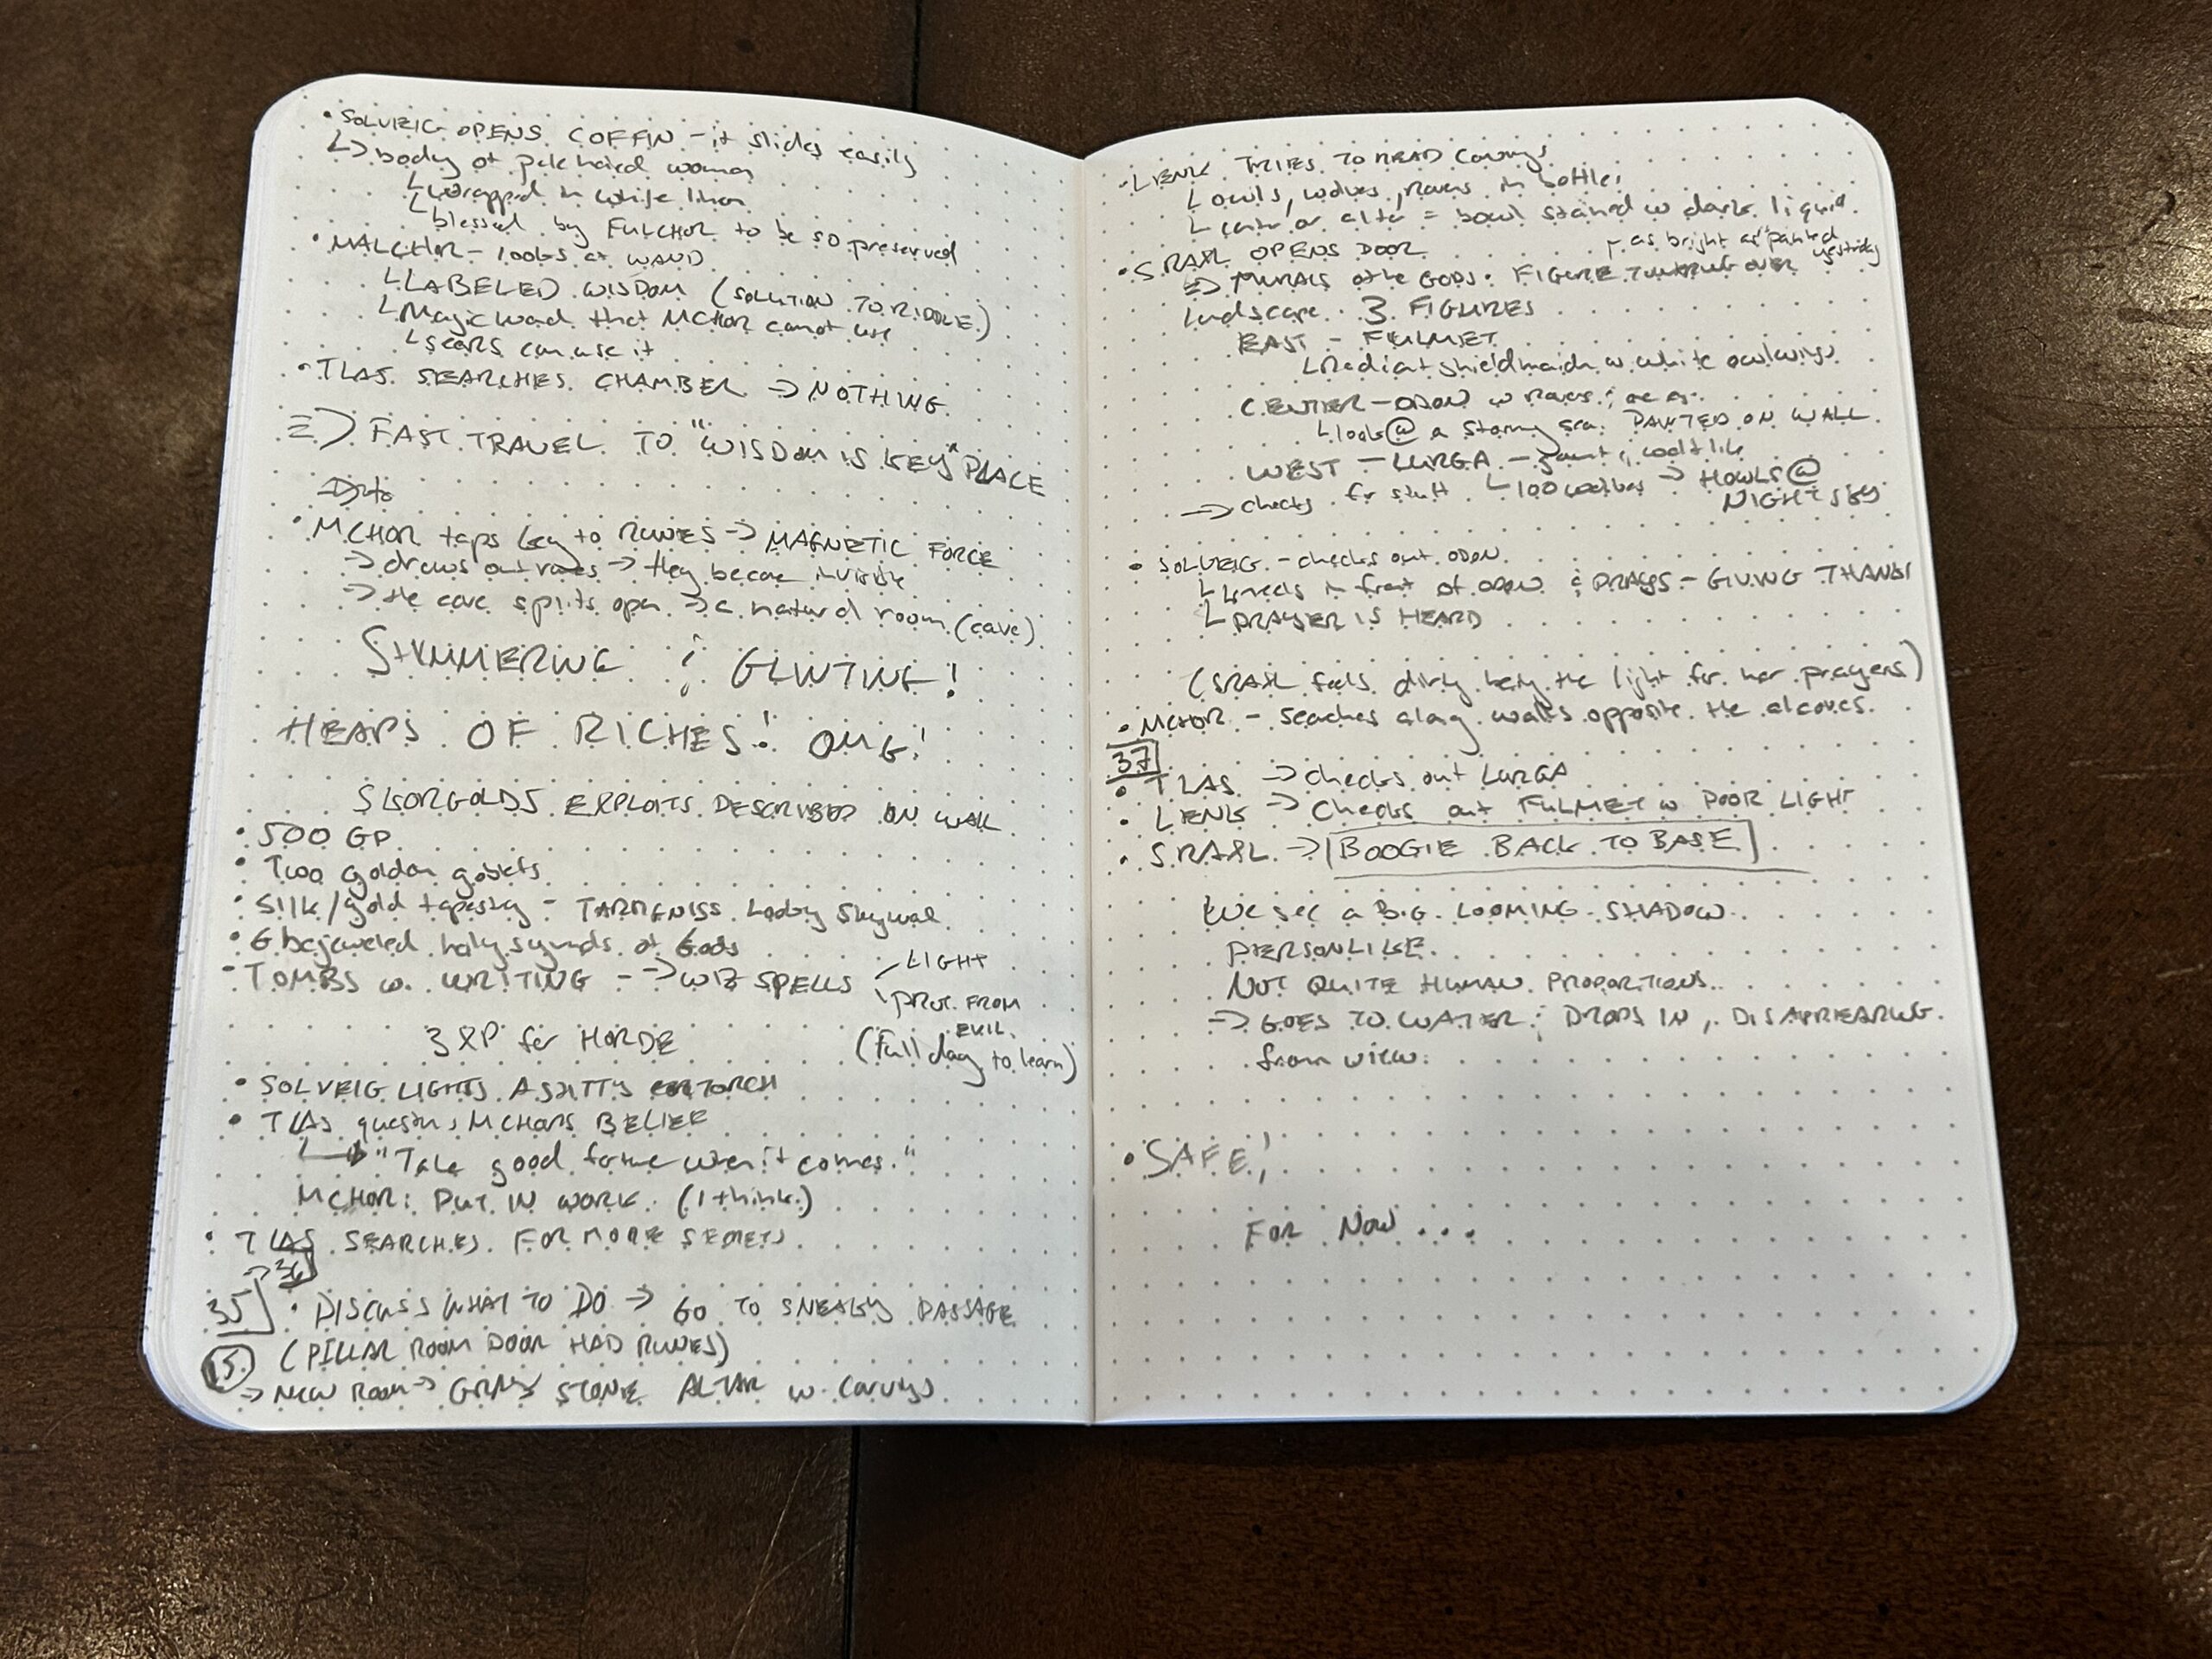 • SOLVEIG OPENS COFFIN - it slides easily
↳ body of pale haired woman
↳ wrapped in white linen
↳ blessed by FULCHOR to be so preserved
• MALCHOR - looks at WAND
↳ LABELED WISDOM (SOLUTION TO RIDDLE)
↳ Magic wand that MCHOR cannot use
↳ can use it
• TLAS SEARCHES CHAMBER → NOTHING
⇒ FAST TRAVEL TO "WISDOM IS KEY" PLACE
• MCHOR taps key to RUNES → MAGNETIC FORCE
→ draws out runes → they become invisible
→ the cave splits open → a natural room (cave)
SHIMMERING & GLINTING!
HEAPS OF RICHES! OMG!
SKORGOLDS EXPLOITS DESCRIBED ON WALL
• 500 GP
• Two golden goblets
• Silk/gold tapestry - Lady
• 6 bejeweled holy symbols of Gods
• TOMBS w. WRITING - → WIZ SPELLS
LIGHT
PROT. FROM EVIL
(full day to learn)
3 XP for HORDE
• SOLVEIG LIGHTS A SHITTY TORCH
• TLAS questions MCHORS BELIEF
↳ "Take good fortune when it comes."
MCHOR: PUT IN WORK. (I think)
• TLAS SEARCHES FOR MORE SECRETS
→ 36
35 • DISCUSS WHAT TO DO → GO TO SNEAKY PASSAGE
(PILLAR ROOM DOOR HAD RUNES)
15
→ NEW ROOM → GRAY STONE ALTAR w. Carvings
• LIENK TRIES TO READ Carvings
↳ owls, wolves, ravens in battle
↳ center of alter = bowl stained w dark liquid
• SRAXL OPENS DOOR
as bright as "painted yesterday
⇒ MURALS of the GODS: FIGURE OVER
landscape. 3 FIGURES
EAST - FULMET
↳ Radiant shieldmaiden w. white owl wings
CENTER - ODON w ravens
↳ looks @ a stormy sea. PAINTED ON WALL
WEST - LURGA - gaunt & wolf like
↳ 100 wolves → HOWLS @ NIGHT SKY
→ checks for stuff
• SOLVEIG - checks out ODON
↳ kneels in front of ODON & PRAYS - GIVING THANKS
↳ PRAYER IS HEARD
(SRAXL feels dirty being the light for her prayers)
• MCHOR - Seaches along walls opposite the alcoves.
37
• TLAS → checks out LURGA
• LIENK → Checks out FULMET w POOR LIGHT
• SRAXL → BOOGIE BACK TO BASE
We see a BIG LOOMING SHADOW
PERSONLIKE.
NOT QUITE HUMAN PROPORTIONS.
→ GOES TO WATER & DROPS IN, DISAPPEARING
from view.
• SAFE!
FOR NOW...